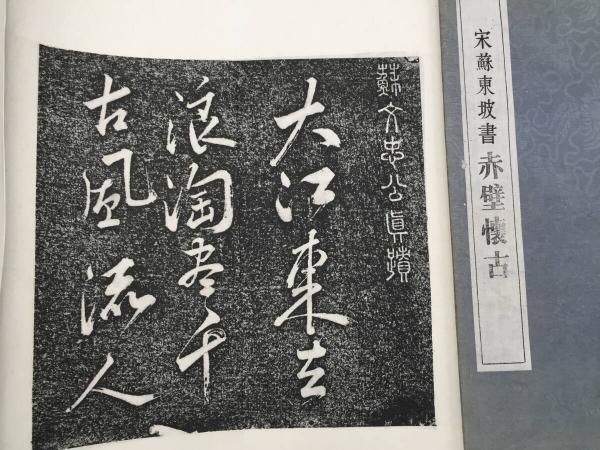 宋蘇東坡書赤壁懷古
蘇文忠公真蹟
大江東去
浪淘尽千
古風流人